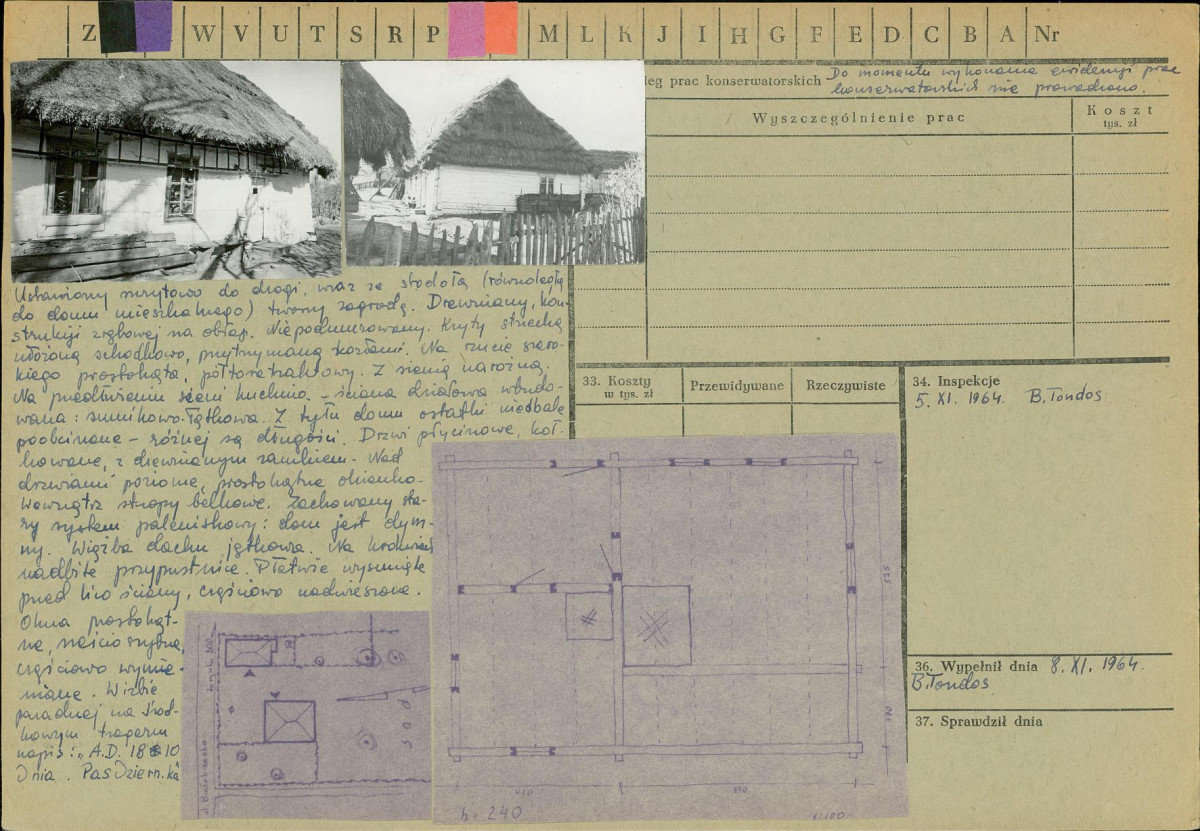 Z W V U T S R P M L K J I H G F E D C B A Nr
ieg prac konserwatorskich Do momentu wykonania ewidencji prac
konserwatorskich nie prowadzono.
Wyszczególnienie prac
Koszt
tys. zł
Ustawiony szczytowo do drogi, wraz ze stodołą (równoległą
do domu mieszkalnego) tworzy zagrodę. Drewniany, kon-
strukcji zrębowej na obłap. Niepodmurowany. Kryty strzechą
ułożoną schodkowo, przytrzymaną kozłami. Na rzucie szero-
kiego prostokąta, półtoratraktowy. Z sienią narożną.
Na przedłużeniu sieni kuchnia - ściana działowa wbudo-
wana: sumikowo-łątkowa. Z tyłu domu ostatki niedbale
poobcinane - różnej są długości. Drzwi płycinowe, koł-
kowane, z drewnianym zamkiem. Nad
drzwiami poziome, prostokątne okienko.
Wewnątrz stropy belkowe. Zachowany sta-
ry system paleniskowy: dom jest dym-
ny. Więźba dachu jętkowa. Na krokwiach
nadbite przypustnice. Płatwie wysunięte
przed lico ściany, częściowo nadwieszone.
Okna prostokąt-
ne, sześcioszybne,
częściowo wymie-
niane. W izbie
paradnej na środ-
kowym tragarzu
napis: "A.D. 1810
Dnia. PasDziern.ka"
33. Koszty
w tys. zł
Przewidywane
Rzeczywiste
34. Inspekcje
5. XI. 1964. B.Tondos
36. Wypełnił dnia 8. XI. 1964.
B.Tondos
37. Sprawdził dnia
sad
525
410
390
h = 240
1:100